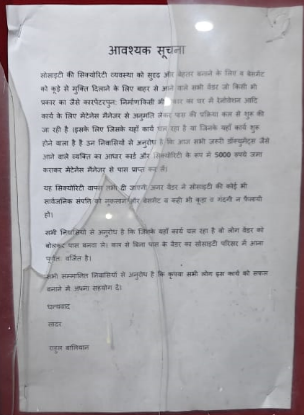 आवश्यक सूचना
सोसाइटी की सिक्योरिटी व्यवस्था को सुदृढ और बेहतर बनाने के लिए व बेसमेंट
को कूड़े से मुक्ति दिलाने के लिए बाहर से आने वाले सभी वेंडर जो किसी भी
प्रकार का जैसे कारपेंटर, निर्माण किसी भी प्रकार का घर में रेनोवेशन आदि
कार्य के लिए मेंटेनेंस मैनेजर से अनुमति लेकर पास की प्रक्रिया कल से शुरू की
जा रही है। इसके लिए जिसके यहाँ कार्य चल रहा है या जिनके यहाँ कार्य शुरू
होने वाला है है उन निवासियों से अनुरोध है कि आज सभी जरूरी डॉक्यूमेंट्स जैसे
आने वाले व्यक्ति का आधार कार्ड और सिक्योरिटी के रूप में 5000 रूपये जमा
कराकर मेंटेनेंस मैनेजर से पास प्राप्त करें।
यह सिक्योरिटी वापस तभी दी जाएगी अगर वेंडर ने सोसाइटी की कोई भी
सार्वजनिक संपत्ति को नुकसान और बेसमेंट व कहीं भी कूड़ा व गंदगी न फैलायी
हो।
सभी निवासियों से अनुरोध है कि जिसके यहाँ कार्य चल रहा है वो लोग वेंडर को
बोलकर पास बनवा लें। कल से बिना पास के वेंडर का सोसाइटी परिसर में आना
पूर्णतः वर्जित है।
सभी सम्मानित निवासियों से अनुरोध है कि कृपया सभी लोग इस कार्य को सफल
बनाने में अपना सहयोग दें।
धन्यवाद
सादर
राहुल बालियान